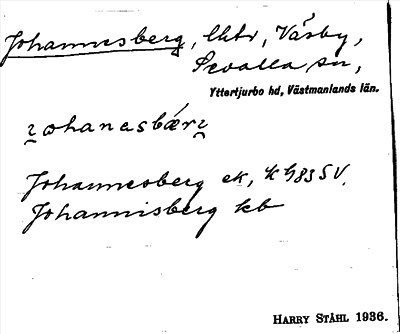 Johannesberg, lht, Väsby,
Sevalla sn,
Yttertjurbo hd, Västmanlands län.
Johannesberg ek, K G83 SV.
Johannisberg kb
HARRY STÅHL 1936.